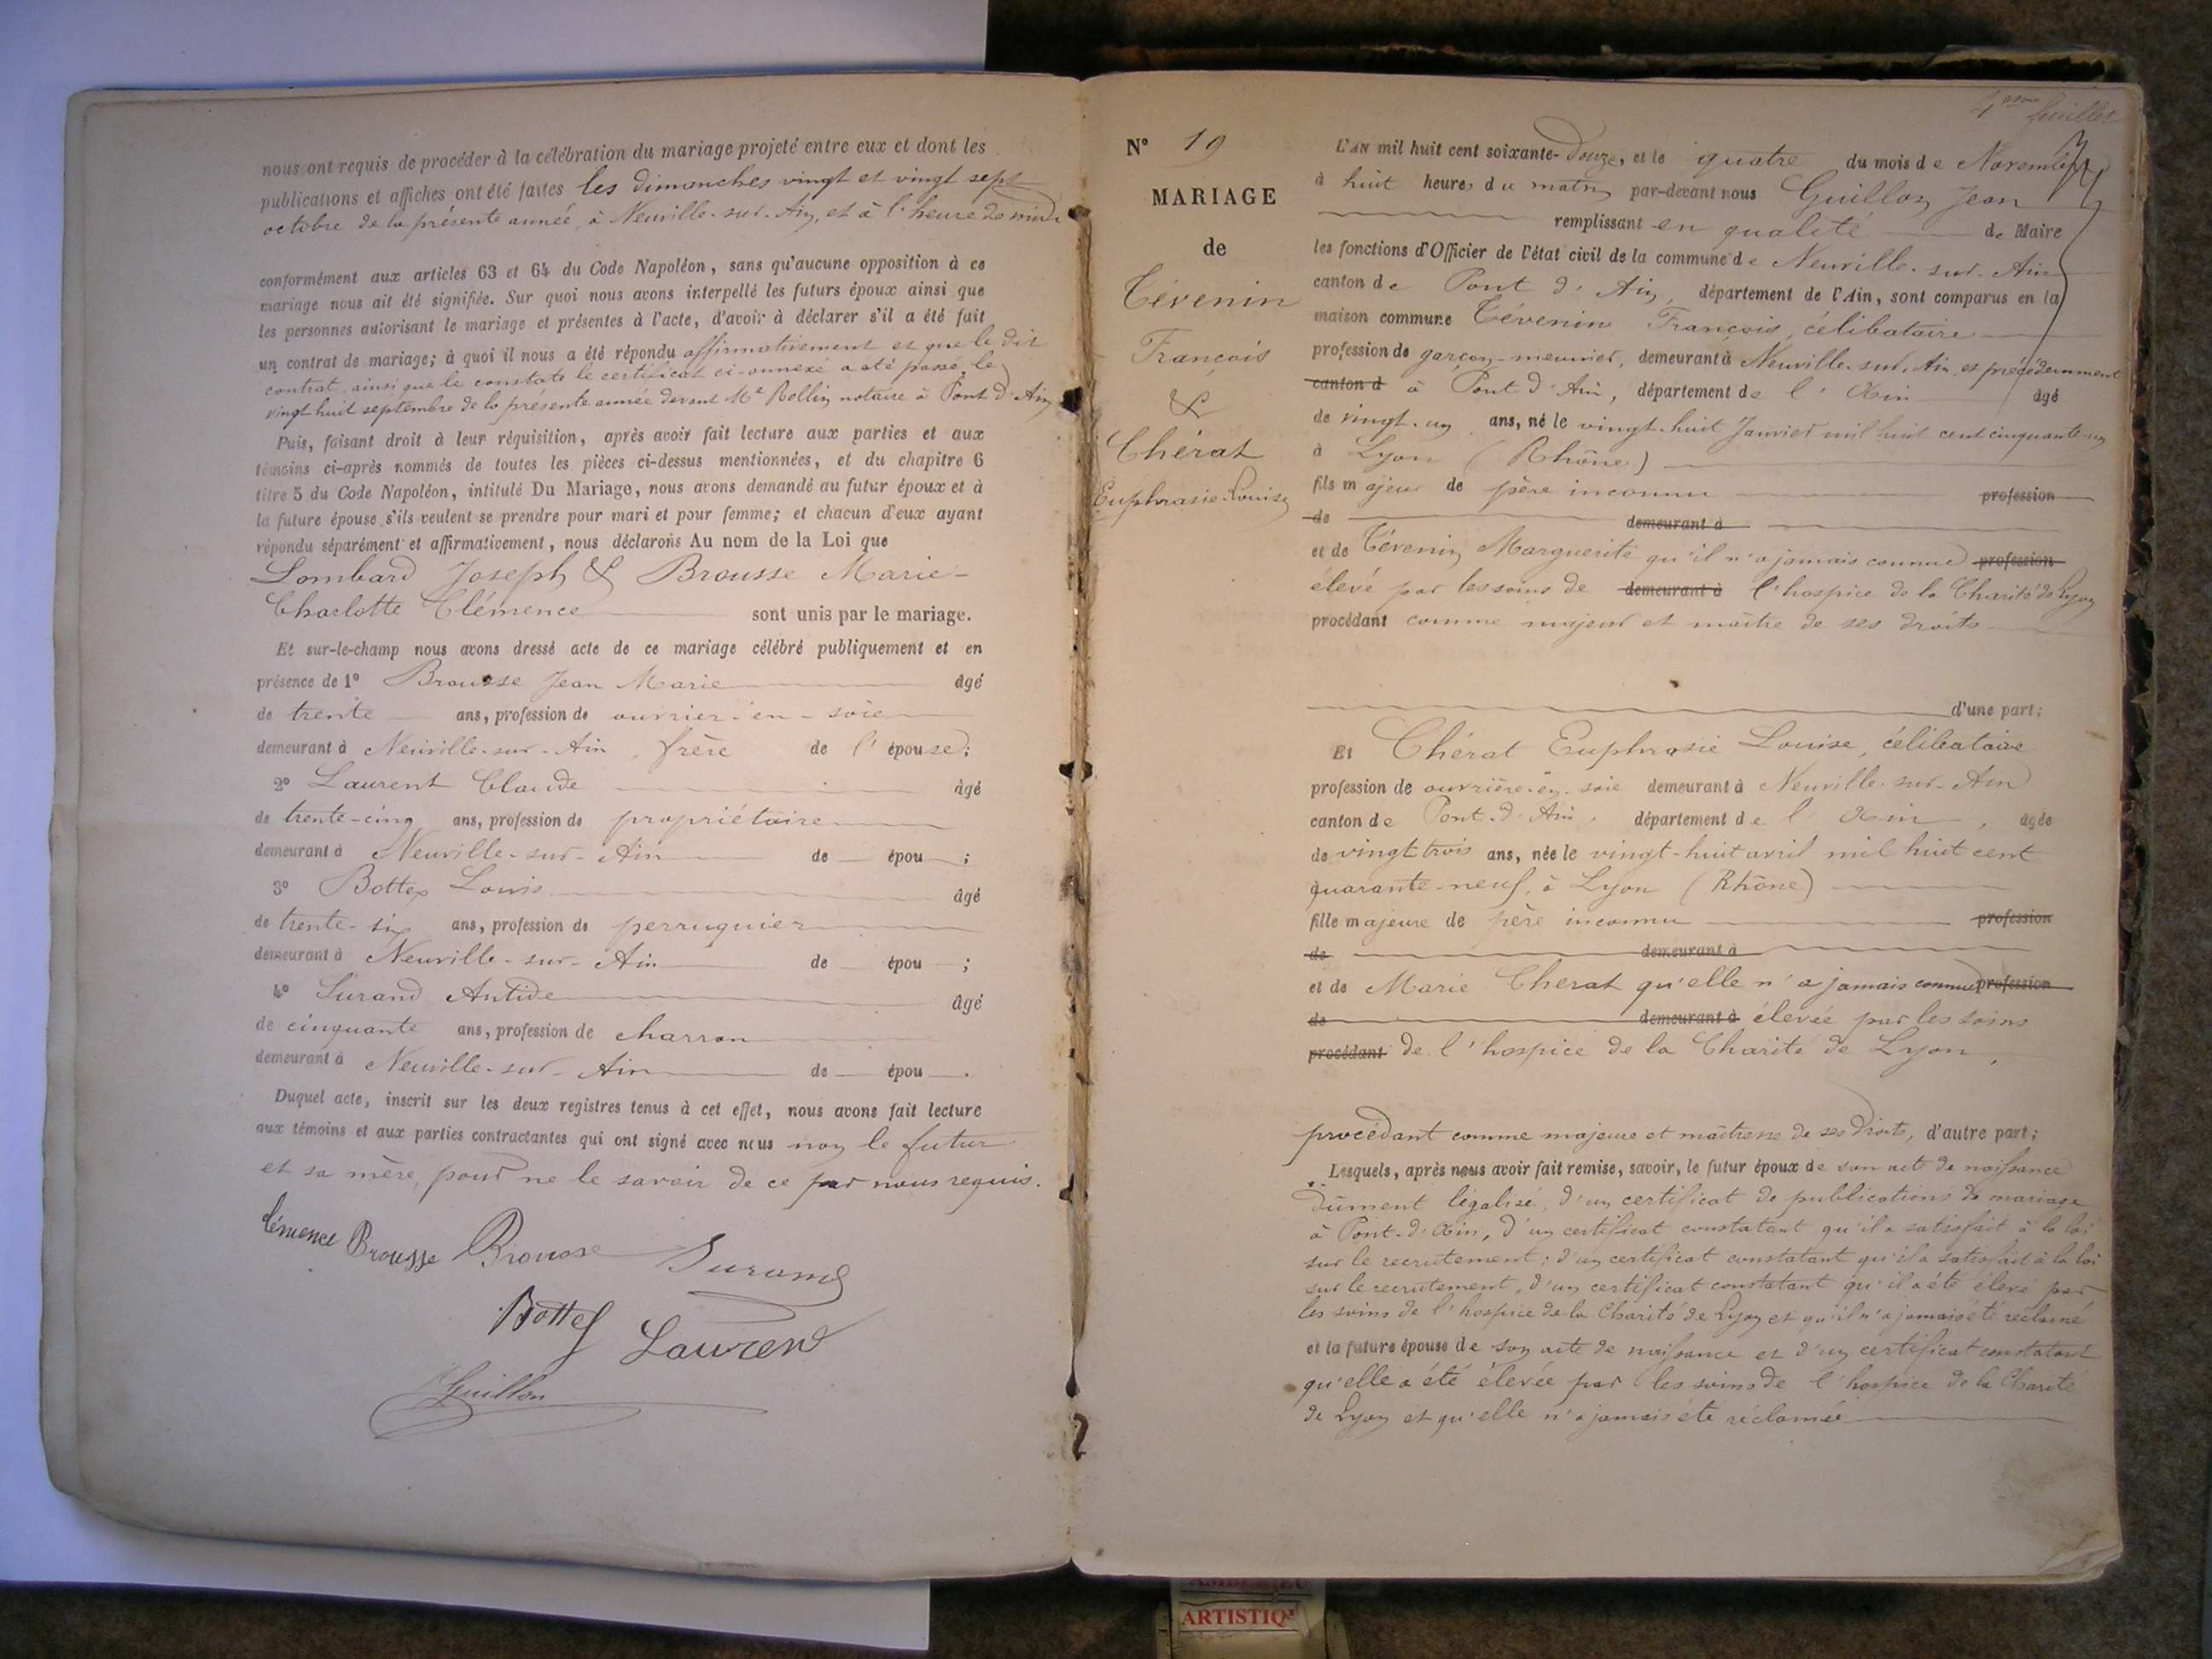 nous ont requis de procéder à la célébration du mariage projeté entre eux et dont les
publications et affiches ont été faites les dimanches vingt et vingt sept
octobre de la présente année, à Neuville-sur-Ain, et à l'heure de midi
conformément aux articles 63 et 64 du Code Napoléon, sans qu'aucune opposition à ce
mariage nous ait été signifiée. Sur quoi nous avons interpellé les futurs époux ainsi que
les personnes autorisant le mariage et présentes à l'acte, d'avoir à déclarer s'il a été fait
un contrat de mariage; à quoi il nous a été répondu affirmativement et que le dit
contrat ainsi que le constate le certificat ci-annexé a été passé le
vingt huit septembre de la présente année devant Me Rollin notaire à Pont d'Ain
Puis, faisant droit à leur réquisition, après avoir fait lecture aux parties et aux
témoins ci-après nommés de toutes les pièces ci-dessus mentionnées, et du chapitre 6
titre 5 du Code Napoléon, intitulé Du Mariage, nous avons demandé au futur époux et à
la future épouse s'ils veulent se prendre pour mari et pour femme; et chacun d'eux ayant
répondu séparément et affirmativement, nous déclarons Au nom de la Loi que
Lombard Joseph & Brousse Marie-
Charlotte Clémence sont unis par le mariage.
Et sur-le-champ nous avons dressé acte de ce mariage célébré publiquement et en
présence de 1º Brousse Jean Marie âgé
de trente ans, profession de ouvrier-en-soie
demeurant à Neuville-sur-Ain, frère de l'épouse;
2º Laurent Claude âgé
de trente-cinq ans, profession de propriétaire
demeurant à Neuville-sur-Ain de épou ;
3º Bottex Louis âgé
de trente-six ans, profession de perruquier
demeurant à Neuville-sur-Ain de épou ;
4º Surand Antide âgé
de cinquante ans, profession de charron
demeurant à Neuville-sur-Ain de épou .
Duquel acte, inscrit sur les deux registres tenus à cet effet, nous avons fait lecture
aux témoins et aux parties contractantes qui ont signé avec nous non le futur
et sa mère, pour ne le savoir de ce par nous requis.
Clémence Brousse Brousse Surand
Bottex Laurent
Guillon
4eme feuillet
Nº 19
MARIAGE
de
Tévenin
François
&
Chérat
Euphrasie-Louise
L'AN mil huit cent soixante-douze, et le quatre du mois de Novembre
à huit heures du matin par-devant nous Guillon Jean
remplissant en qualité de Maire
les fonctions d'Officier de l'état civil de la commune de Neuville-sur-Ain
canton de Pont d'Ain, département de l'Ain, sont comparus en la
maison commune Tévenin François, célibataire
profession de garçon-meunier, demeurant à Neuville-sur-Ain et précédemment
canton d à Pont d'Ain, département de l'Ain âgé
de vingt-un ans, né le vingt-huit Janvier mil huit cent cinquante-un
à Lyon (Rhône)
fils majeur de père inconnu profession
de demeurant à
et de Tévenin Marguerite qu'il n'a jamais connue profession
élevé par les soins de demeurant à l'hospice de la Charité de Lyon
procédant comme majeur et maître de ses droits
d'une part;
Et Chérat Euphrasie Louise, célibataire
profession de ouvrière-en-soie demeurant à Neuville-sur-Ain
canton de Pont-d'Ain, département de l'Ain, âgée
de vingt trois ans, née le vingt-huit avril mil huit cent
quarante-neuf, à Lyon (Rhône)
fille majeure de père inconnu profession
de demeurant à
et de Marie Chérat qu'elle n'a jamais connue profession
de demeurant à élevée par les soins
procédant de l'hospice de la Charité de Lyon,
procédant comme majeure et maîtresse de ses droits, d'autre part;
Lesquels, après nous avoir fait remise, savoir, le futur époux de son acte de naissance
dûment légalisé, d'un certificat de publications de mariage
à Pont-d'Ain, d'un certificat constatant qu'il a satisfait à la loi
sur le recrutement; d'un certificat constatant qu'il a satisfait à la loi
sur le recrutement, d'un certificat constatant qu'il a été élevé par
les soins de l'hospice de la Charité de Lyon et qu'il n'a jamais été réclamé
et la future épouse de son acte de naissance et d'un certificat constatant
qu'elle a été élevée par les soins de l'hospice de la Charité
de Lyon et qu'elle n'a jamais été réclamée
ARTISTIQ